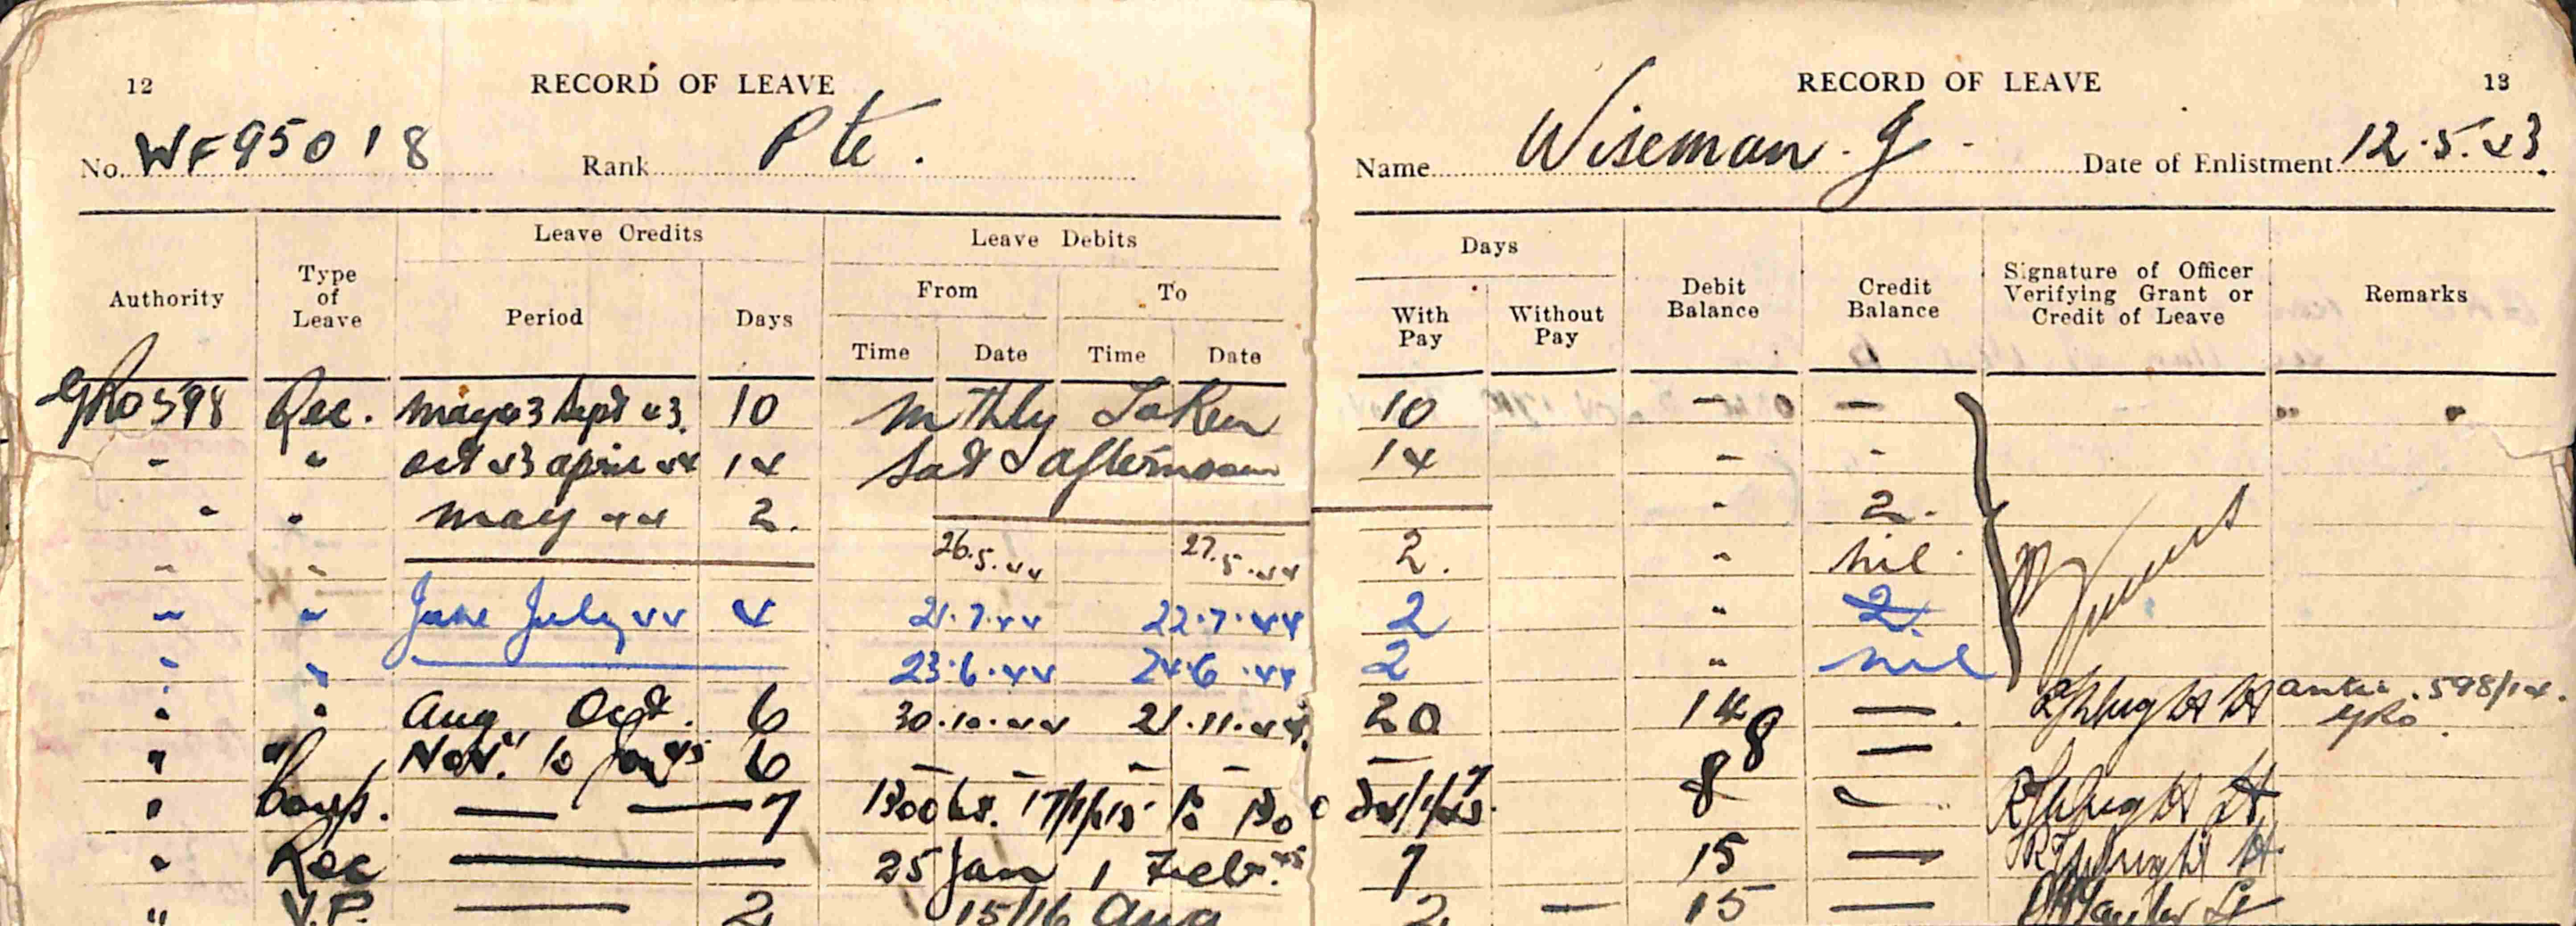 12 RECORD OF LEAVE
No. WF95018 Rank Pte.
RECORD OF LEAVE 13
Name Wiseman. J - Date of Enlistment 12.5.43.
Leave Credits Leave Debits Days
Authority Type of Leave Period Days From To With Pay Without Pay Debit Balance Credit Balance Signature of Officer Verifying Grant or Credit of Leave Remarks
Time Date Time Date
GRO 598 Rec. may 43 Sept 43. 10 mthly Taken 10 - -
- " oct 43 april 44 14 Sat afternoon 14 - -
" " may 44 2. " 2.
- - 26.5.44 27.5.44 2. " nil
" " June July 44 4 21.7.44 22.7.44 2 " 2.
" " 23.6.44 24.6.44 2 " nil
" " Aug Oct. 6 30.10.44 21.11.44. 20 14 — 598/14.
GRO.
" " Nov. to Jan 45 6 - - - - - 8 —
" — — 7 1300 hr. 17/1/45 to 130 0 24/1/45. 8
" Rec — 25 Jan 1 Feb. 45 7 15 —
" V.P. — 2 15/16 Aug 2 — 15 —